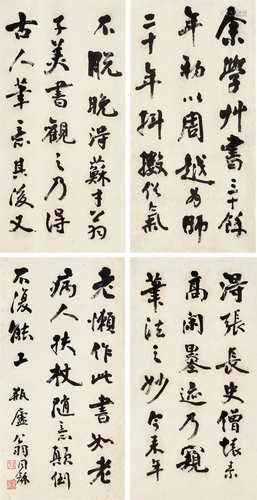 余學艸書三十餘
年初以周越為師
二十年抖擻俗氣
不脫晚得蘇才翁
子美書觀之乃得
古人筆意其後又
得張長史僧懷素
高閑墨迹乃窺
筆法之妙今來年
老懶作此書如老
病人扶杖隨意顛倒
不復能工 瓶廬翁同龢